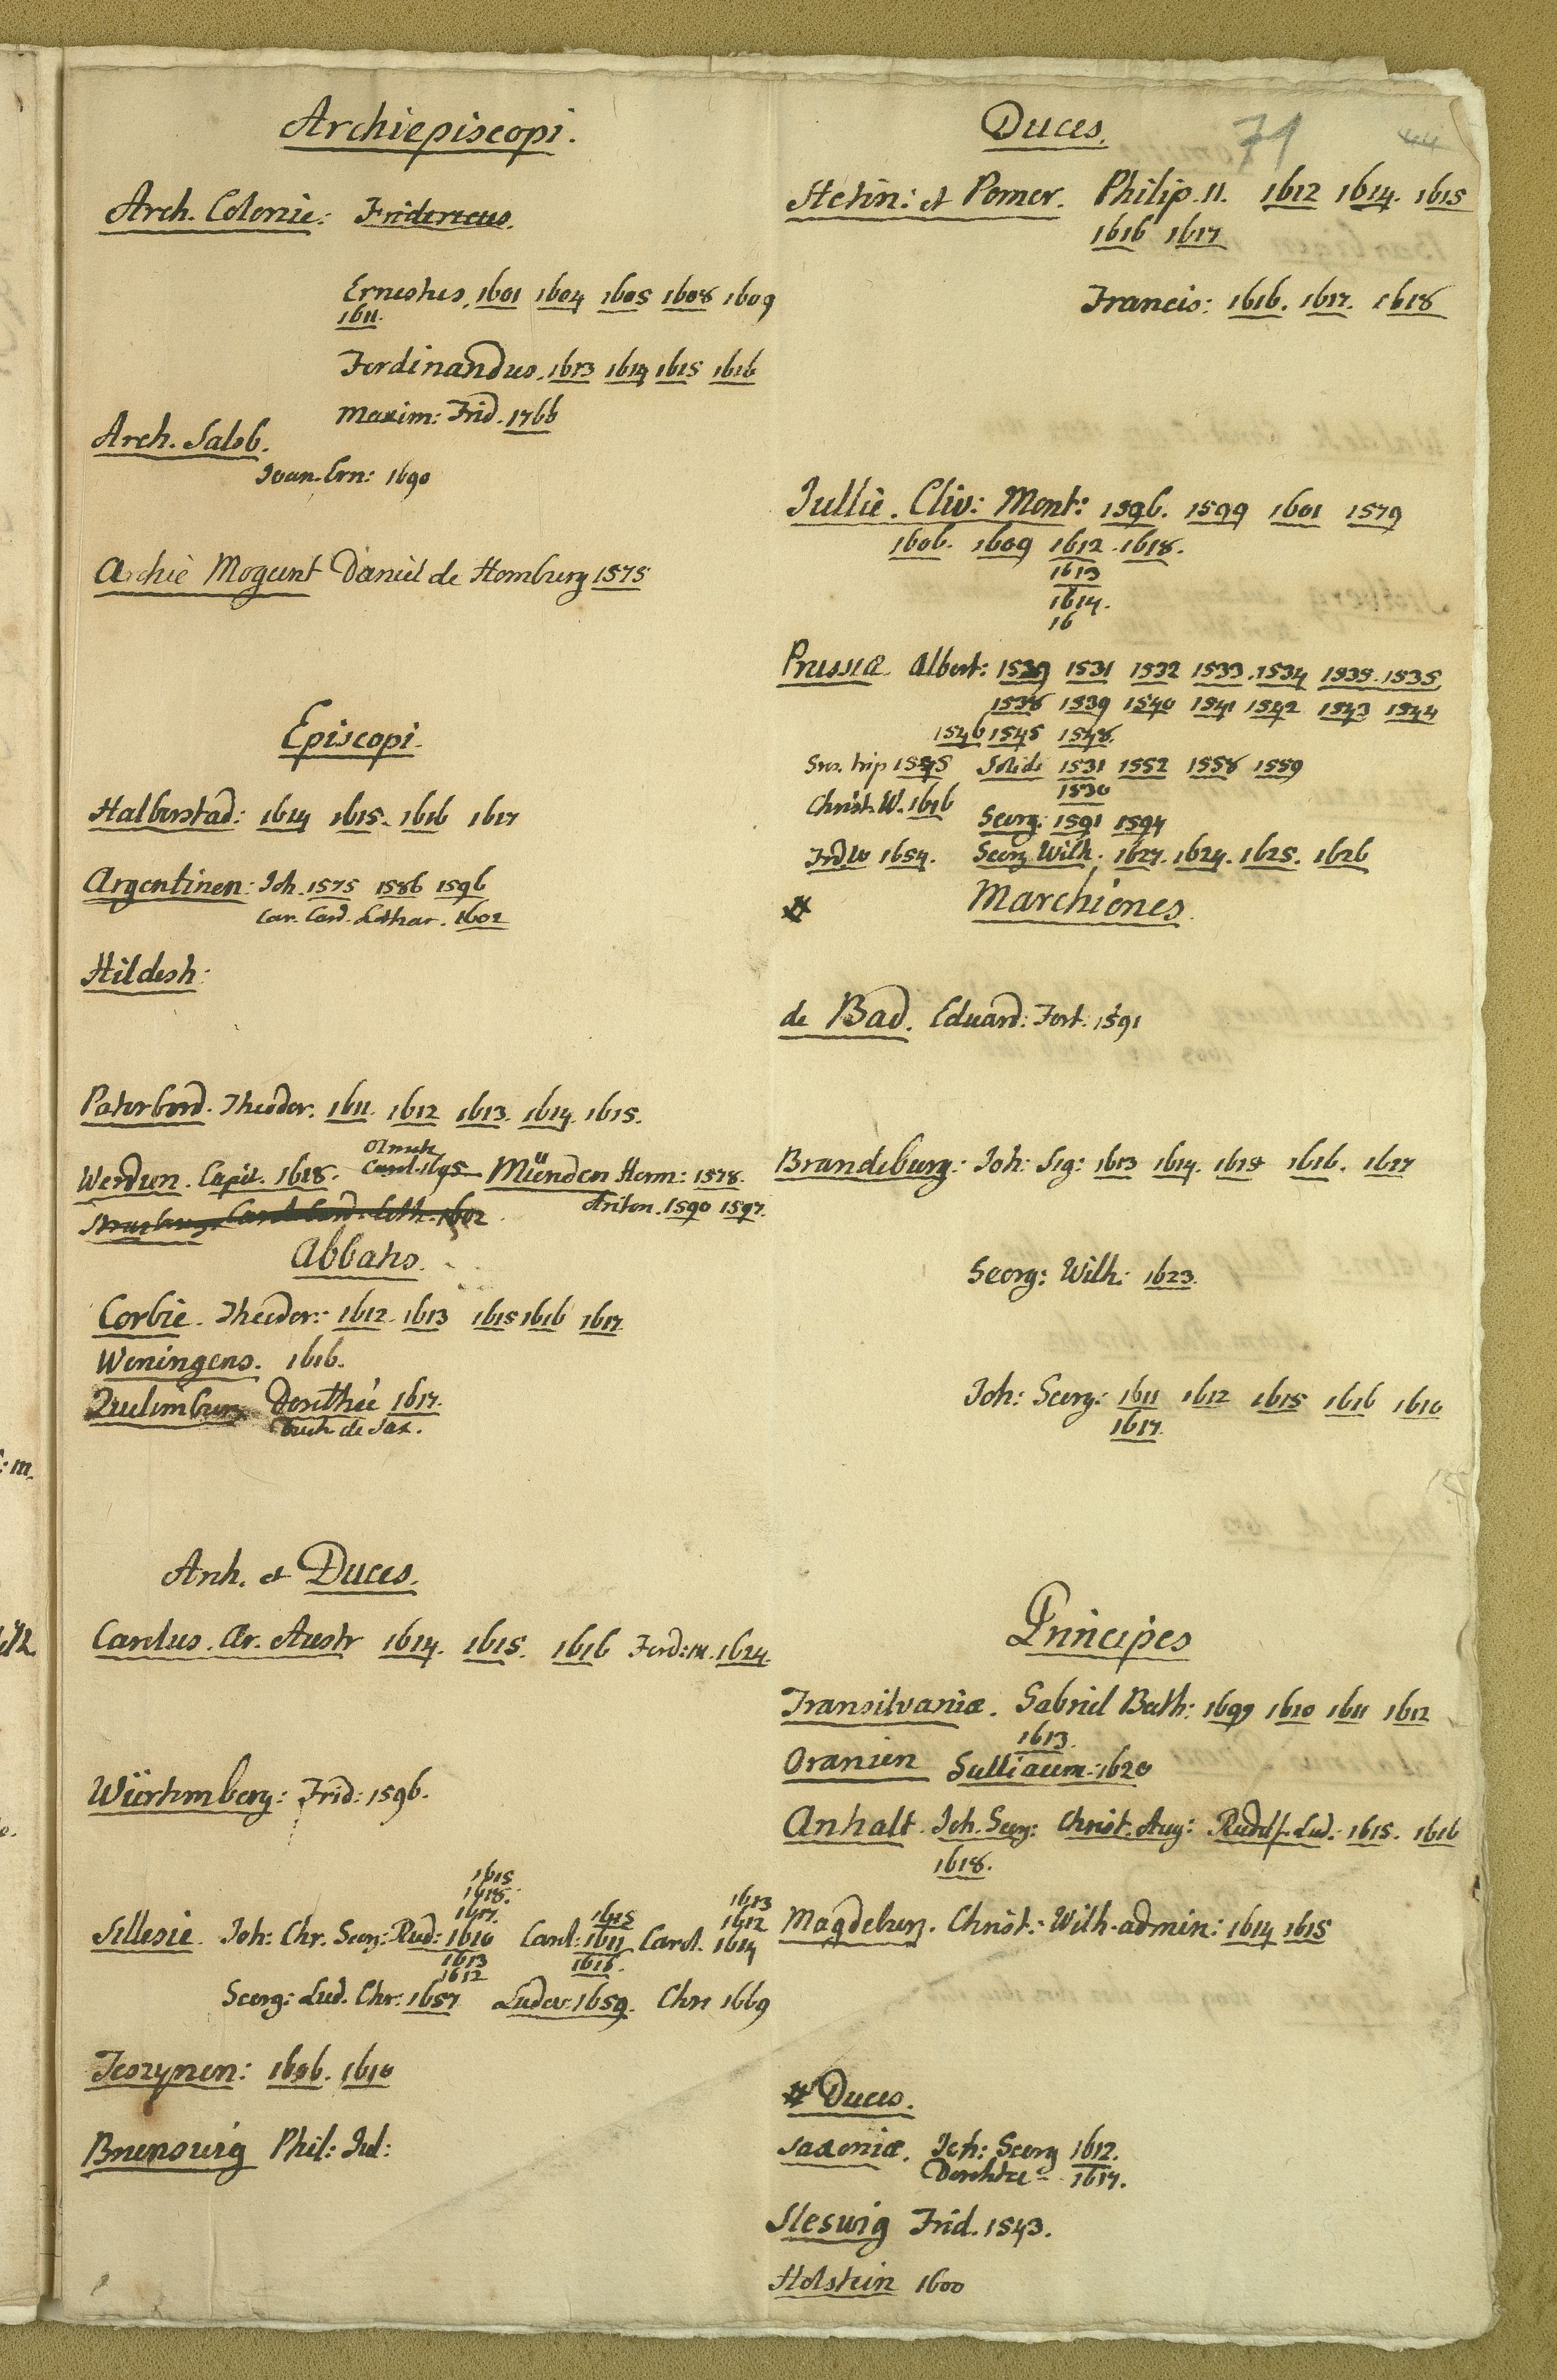 Archiepiscopi.
Arch. Colonie: Fridericus.
Ernestus. 1601 1604 1605 1608 1609
1611.
Ferdinandus. 1613 1614 1615 1616
Maxim: Frid. 1766
Arch. Salsb.
Joan. Ern: 1690
Archie Mogunt Daniel de Homburg 1575
Episcopi.
Halberstad: 1614 1615. 1616 1617
Argentinen: Joh. 1575 1586 1596
Car. Card. Lothar. 1602
Hildesh:
Paterbord. Theodor. 1611. 1612 1613. 1614. 1615.
Olmutz
Werdun. Capit. 1618. Carol. 1695 Münden Herm: 1578.
Anton. 1590 1597.
Card. Loth. 1602
Abbates.
Corbie. Theodor: 1612. 1613 1615 1616 1617
Weningens. 1616.
Qulimburg Dorithée 1617.
Duch de Sax.
Arch. et Duces.
Carolus. Ar. Austr 1614. 1615. 1616 Ferd: m. 1624.
Würtemberg: Frid: 1596.
1615
1618.
1617.
Sillesie Joh: Chr. Georg: Rud: 1610
1613
1612
1615
Carol: 1611
1616.
1613
1612
Carol. 1614
Georg: Lud. Chr: 1657 Ludov: 1659. Chri 1669
Teozynen: 1606. 1610
Brensvig Phil: Jul:
Duces. 71
44
Stetin: et Pomer. Philip. II. 1612 1614. 1615
1616 1617
Francis: 1616. 1617. 1618
Jullie. Cliv: Mont: 1596. 1599 1601 1579
1606. 1609 1612. 1618.
1613
1614.
16
Prussiæ Albert: 1529 1531 1532 1533. 1534 1535. 1535
1538 1539 1540 1541 1542 1543 1544
1546 1545 1548.
Gros. trip 1535 Solidi 1531 1552 1558 1559
1530
Christ. W. 1616
Georg: 1591 1594
Frd. W 1654. Georg Wilh. 1627. 1624. 1625. 1626
# Marchiones.
de Bad. Eduard: Fort: 1591
Brandeburg: Joh: Sig: 1613 1614. 1615 1616. 1617
Georg: Wilh: 1623.
Joh: Georg: 1611 1612 1615 1616 1610
1617.
Principes
Transilvaniæ. Gabriel Bath: 1609 1610 1611 1612
1613.
Oranien Gulliaum: 1620
Anhalt. Joh. Georg: Christ. Aug: Rudolf. Lud. 1615. 1616
1618.
Magdeburg. Christ: Wilh. admin: 1614 1615
# Duces.
Saxoniæ. Joh: Georg 1612.
Dorothée 1617.
Sleswig Frid. 1543.
Holstein 1600